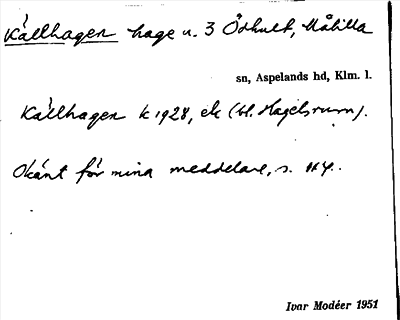 Källhagen hage u. 3 Ödhult, Målilla
sn, Aspelands hd, Klm. l.
Källhagen k 1928, ek (bl. Hagelsrum).
Okänt för mina meddelare, s. 114.
Ivar Modéer 1951